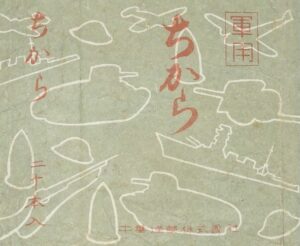 軍用
ちから
ちから
二十本入